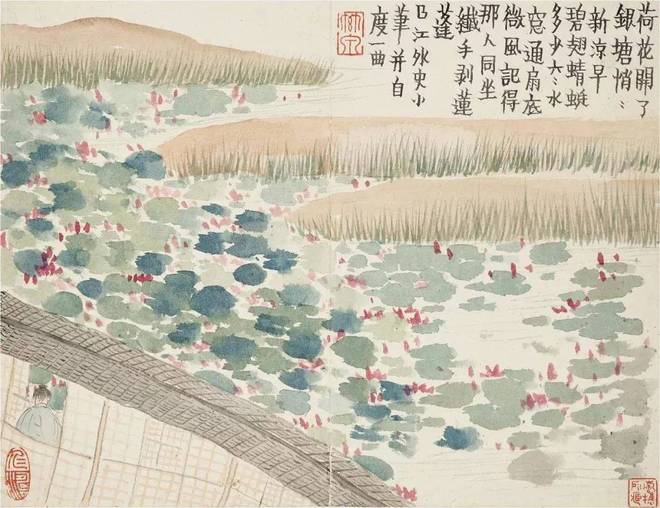 荷花開了
銀塘悄〻
新涼早
碧翅蜻蜓
多少六〻水
窓通扇底
微風記得
那人同坐
纖手剝蓮
蓬
江外史小
筆并自
度一曲